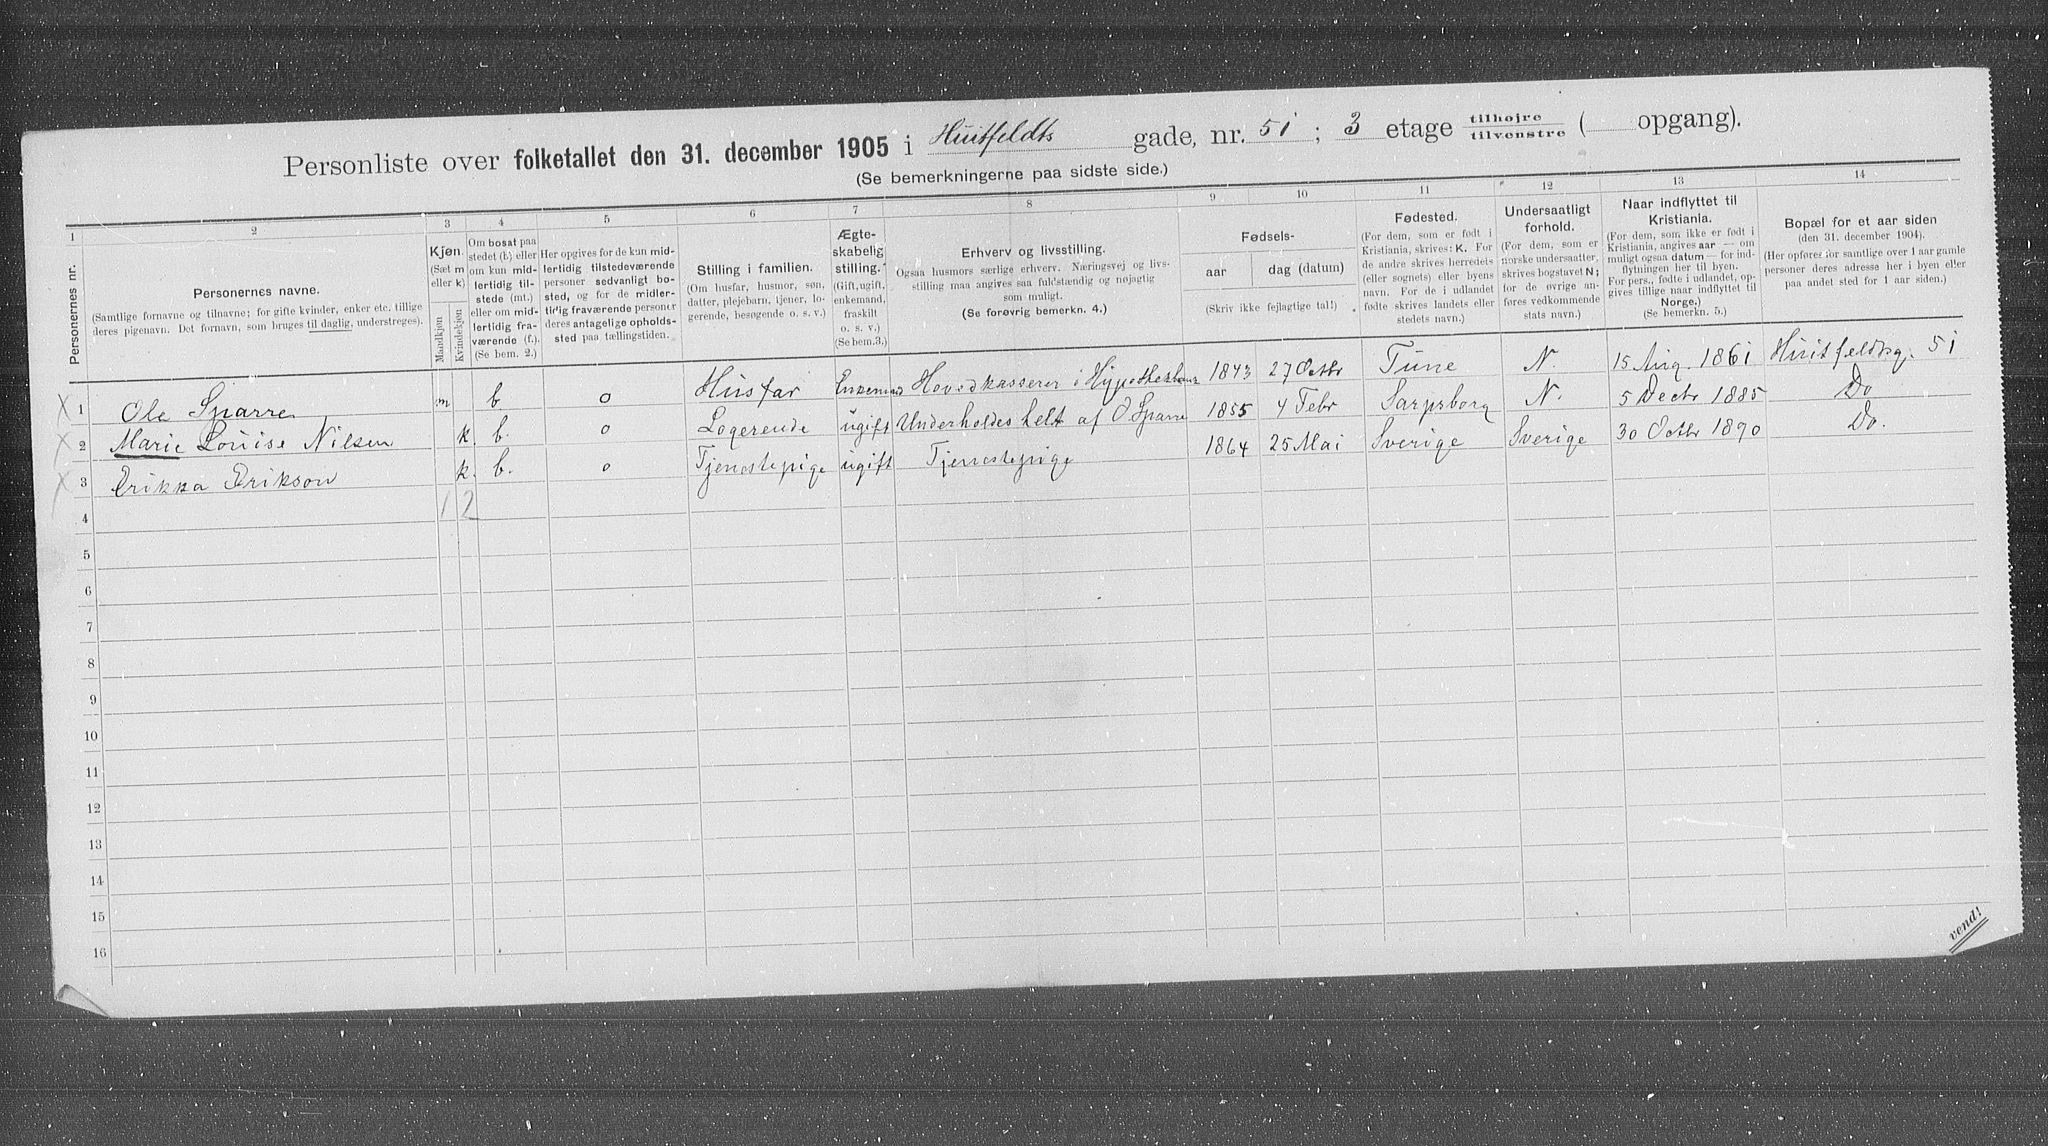 Personliste over folketallet den 31. december 1905 i Huitfeldts gade, nr. 51 ; 3 etage tilhøjre tilvenstre ( opgang).
(Se bemerkningerne paa sidste side.)
1 2 3 4 5 6 7 8 9 10 11 12 13 14
Personernes nr.
Personernes navne.
(Samtlige fornavne og tilnavne; for gifte kvinder, enker etc. tillige
deres pigenavn. Det fornavn, som bruges til daglig, understreges).
Kjøn.
(Sæt m
eller k)
Mandkjøn
Kvindekjøn
Om bosat paa
stedet (b) eller
om kun mid-
lertidig til-
stede (mt.)
eller om mid-
lertidig fra-
værende (f.).
(Se bem. 2.)
Her opgives for de kun mid-
lertidig tilstedeværende
personer sedvanligt bo-
sted, og for de midler-
tidig fraværende personer
deres antagelige opholds-
sted paa tællingstiden.
Stilling i familien.
(Om husfar, husmor, søn,
datter, plejebarn, tjener, lo-
gerende, besøgende o. s. v.)
Ægte-
skabelig
stilling.
(Gift, ugift,
enkemand,
fraskilt
o. s. v.)
(Se bem.3.)
Erhverv og livsstilling.
Ogsaa husmors særlige erhverv. Næringsvej og livs-
stilling maa angives saa fuldstændig og nøjagtig
som muligt.
(Se forøvrig bemerkn. 4.)
Fødsels-
aar
dag (datum)
(Skriv ikke fejlagtige tal!)
Fødested.
(For dem, som er født i
Kristiania, skrives: K. For
de andre skrives herredets
(eller sognets) eller byens
navn. For de i udlandet
fødte skrives landets eller
stedets navn.)
Undersaatligt
forhold.
(For dem, som er
norske undersaatter,
skrives bogstavet N;
for de øvrige an-
føres vedkommende
stats navn.)
Naar indflyttet til
Kristiania.
(For dem, som ikke er født i
Kristiania, angives aar — om
muligt ogsaa datum — for ind-
flytningen her til byen.
For pers., fødte i udlandet, op-
gives tillige naar indflyttet til
Norge.)
(Se bemerkn. 5.)
Bopæl for et aar siden
(den 31. december 1904).
(Her opføres for samtlige over 1 aar gamle
personer deres adresse her i byen eller
paa andet sted for 1 aar siden.)
1 Ole Sparre m b o Husfar Enkemand Hovedkasserer i Hypothekbank 1843 27 Octbr Tune N. 15 Aug. 1861 Huitfeldtsg. 51
2 Marie Louise Nilsen k. b. o Logerende ugift Underholdes helt af O Sparre 1855 4 Febr Sarpsborg N. 5 Decbr 1885 Do
3 Erikka Erikson k. b. o Tjenestepige ugift Tjenestepige 1864 25 Mai Sverige Sverige 30 Octbr 1890 Do.
4 1 2
5
6
7
8
9
10
11
12
13
14
15
16
vend!